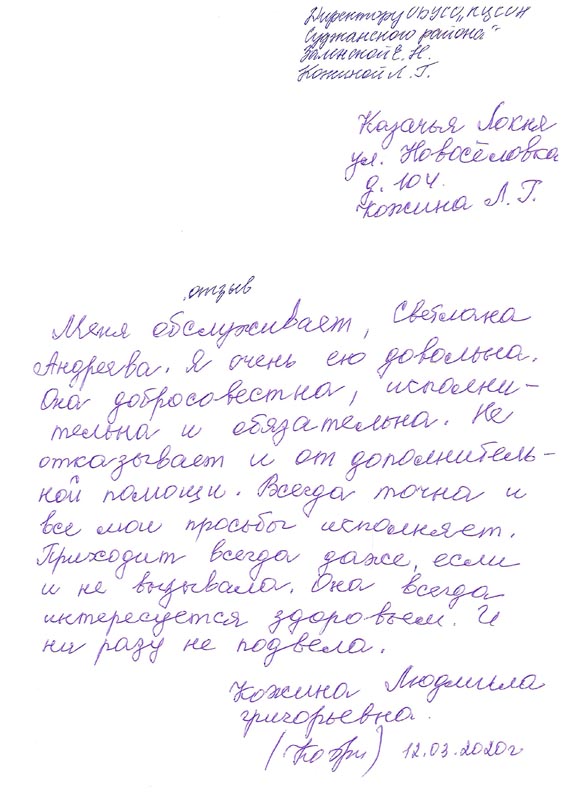 Директору ОБУСО „КЦСОН
Суджанского района“
Заленской Е. Н.
Кожиной Л. Г.
Казачья Локня
ул. Новосёловка
д. 104.
Кожина Л. Г.
отзыв
Меня обслуживает, Светлана
Андреева. Я очень ею довольна.
Она добросовестна, исполни-
тельна и обязательна. Не
отказывает и от дополнитель-
ной помощи. Всегда точна и
все мои просьбы исполняет.
Приходит всегда даже, если
и не вызывала. Она всегда
интересуется здоровьем. И
ни разу не подвела.
Кожина Людмила
григорьевна.
12.03.2020г